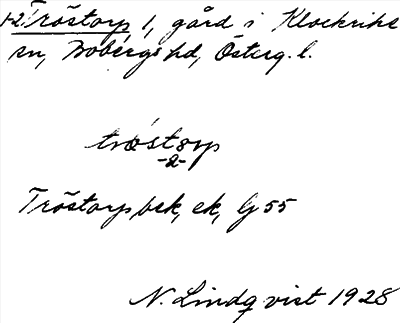 1-2 Tröstorp 1, gård i Klockrike
sn, Bobergs hd, Österg. l.
trøstorp
-2-
Tröstorp, bsk, ek, Ij 55
N. Lindqvist 1928